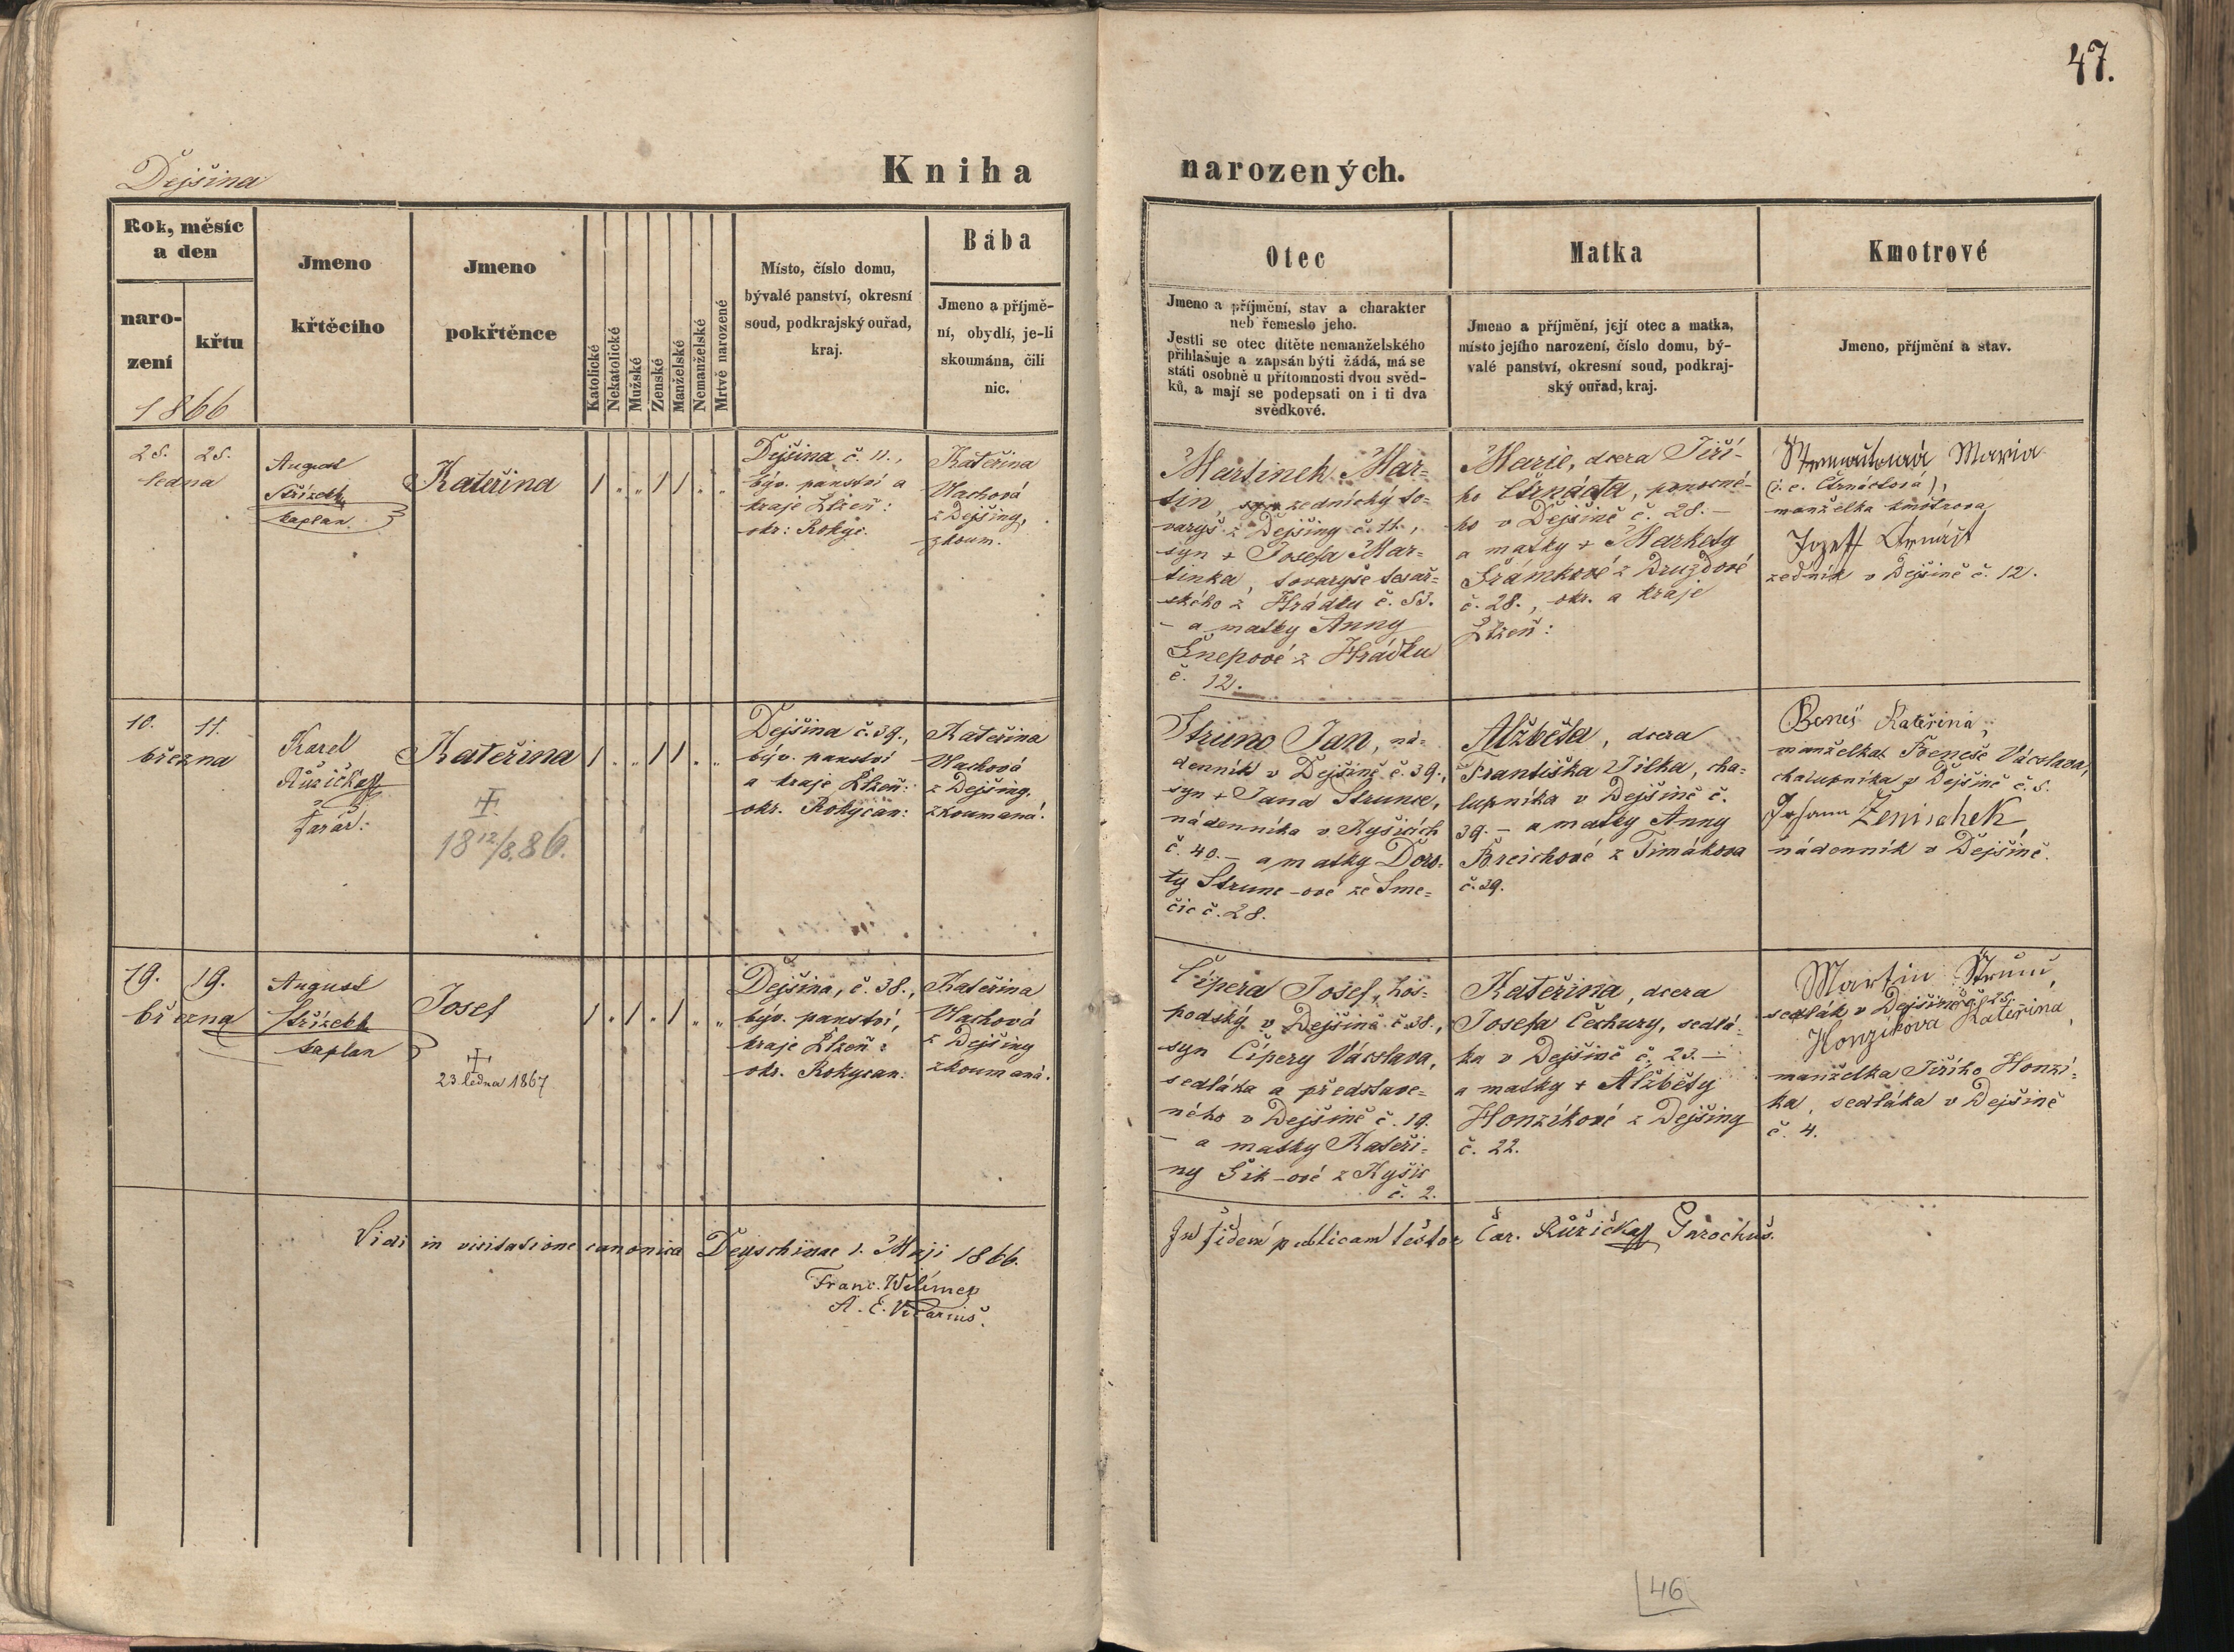 47.
Dejšina
Kniha narozených.
Rok, měsíc
a den
naro-
zení
křtu
1866
Jmeno
křtěcího
Jmeno
pokřtěnce
Katolické
Nekatolické
Mužské
Ženské
Manželské
Nemanželské
Mrtvě narozené
Místo, číslo domu,
bývalé panství, okresní
soud, podkrajský ouřad,
kraj.
Bába
Jmeno a příjmě-
ní, obydlí, je-li
skoumána, čili
nic.
Otec
Jmeno a příjmění, stav a charakter
neb řemeslo jeho.
Jestli se otec dítěte nemanželského
přihlašuje a zapsán býti žádá, má se
státi osobně u přítomnosti dvou svěd-
ků, a mají se podepsati on i ti dva
svědkové.
Matka
Jmeno a příjmění, její otec a matka,
místo jejího narození, číslo domu, bý-
valé panství, okresní soud, podkraj-
ský ouřad, kraj.
Kmotrové
Jmeno, příjmění a stav.
25. 25.
ledna
August
Střízek
kaplan
Kateřina
1 „ „ 1 1 „ „
Dejšina č. 11.,
býv. panství a
kraje Plzeň:
okr: Rokyc.
Kateřina
Wachová
z Dejšiny,
zkoum.
Martinek Mar=
tin, zednický to=
varyš z Dejšiny č. 11.,
syn + Josefa Mar=
tinka, tovaryše tesař=
ského z Hrádku č. 53.
– a matky Anny
Šnepové z Hrádku
č. 12.
Marie, dcera Jiří-
ho Čtrnácta, ponocné-
ho v Dejšině č. 28. –
a matky + Markety
Šrámkové z Druzdové
č. 28., okr. a kraje
Plzeň:
Maria
(i. e. Čtrnáctová),
manželka kmotrova
Jozeff
zedník v Dejšině č. 12.
10. 11.
března
Karel
Růžička
farář.
Kateřina
18 12/8. 86.
1 „ „ 1 1 „ „
Dejšina č. 39.,
býv. panství
a kraje Plzeň:
okr. Rokycan:
Kateřina
Wachová
z Dejšiny.
zkoumaná.
Strunc Jan, ná=
denník v Dejšině č. 39.,
syn + Jana Strunce,
nádenníka v Kyšicích
č. 40. – a matky Doro=
ty Strunc-ové ze Sme=
čic č. 28.
Alžběta, dcera
Františka Jílka, cha=
lupníka v Dejšině č.
39. – a matky Anny
Breichové z Timákova
č. 39.
Beneš Kateřina,
manželka Beneše Václava,
chalupníka v Dejšině č. 5.
Johann
nádenník v Dejšině.
19. 19.
března
August
Střízek
kaplan
Josef
23. ledna 1867
1 „ 1 „ 1 „ „
Dejšina, č. 38.,
býv. panství,
kraje Plzeň:
okr. Rokycan.
Kateřina
Wachová
z Dejšiny
zkoumaná.
Čípera Josef, hos=
podský v Dejšině č. 38.,
syn Čípery Václava,
sedláka a představe=
ného v Dejšině č. 19.
– a matky Kateři=
ny Šik-ové z Kyšic
č. 2.
Kateřina, dcera
Josefa Čechury, sedlá=
ka v Dejšině č. 23. –
a matky + Alžběty
Honzíkové z Dejšiny
č. 22.
Martin Štrunc
sedlák v Dejšině č. 25.
Honzikova Kateřina,
manželka Jiřího Honzí=
ka, sedláka v Dejšině
č. 4.
Vidi in visitatione canonica Deyschinae 1. Maji 1866.
Franc. Wilímek
A. E. Vicarius.
In fidem publicam testor Car. Růžička Parochus.
46